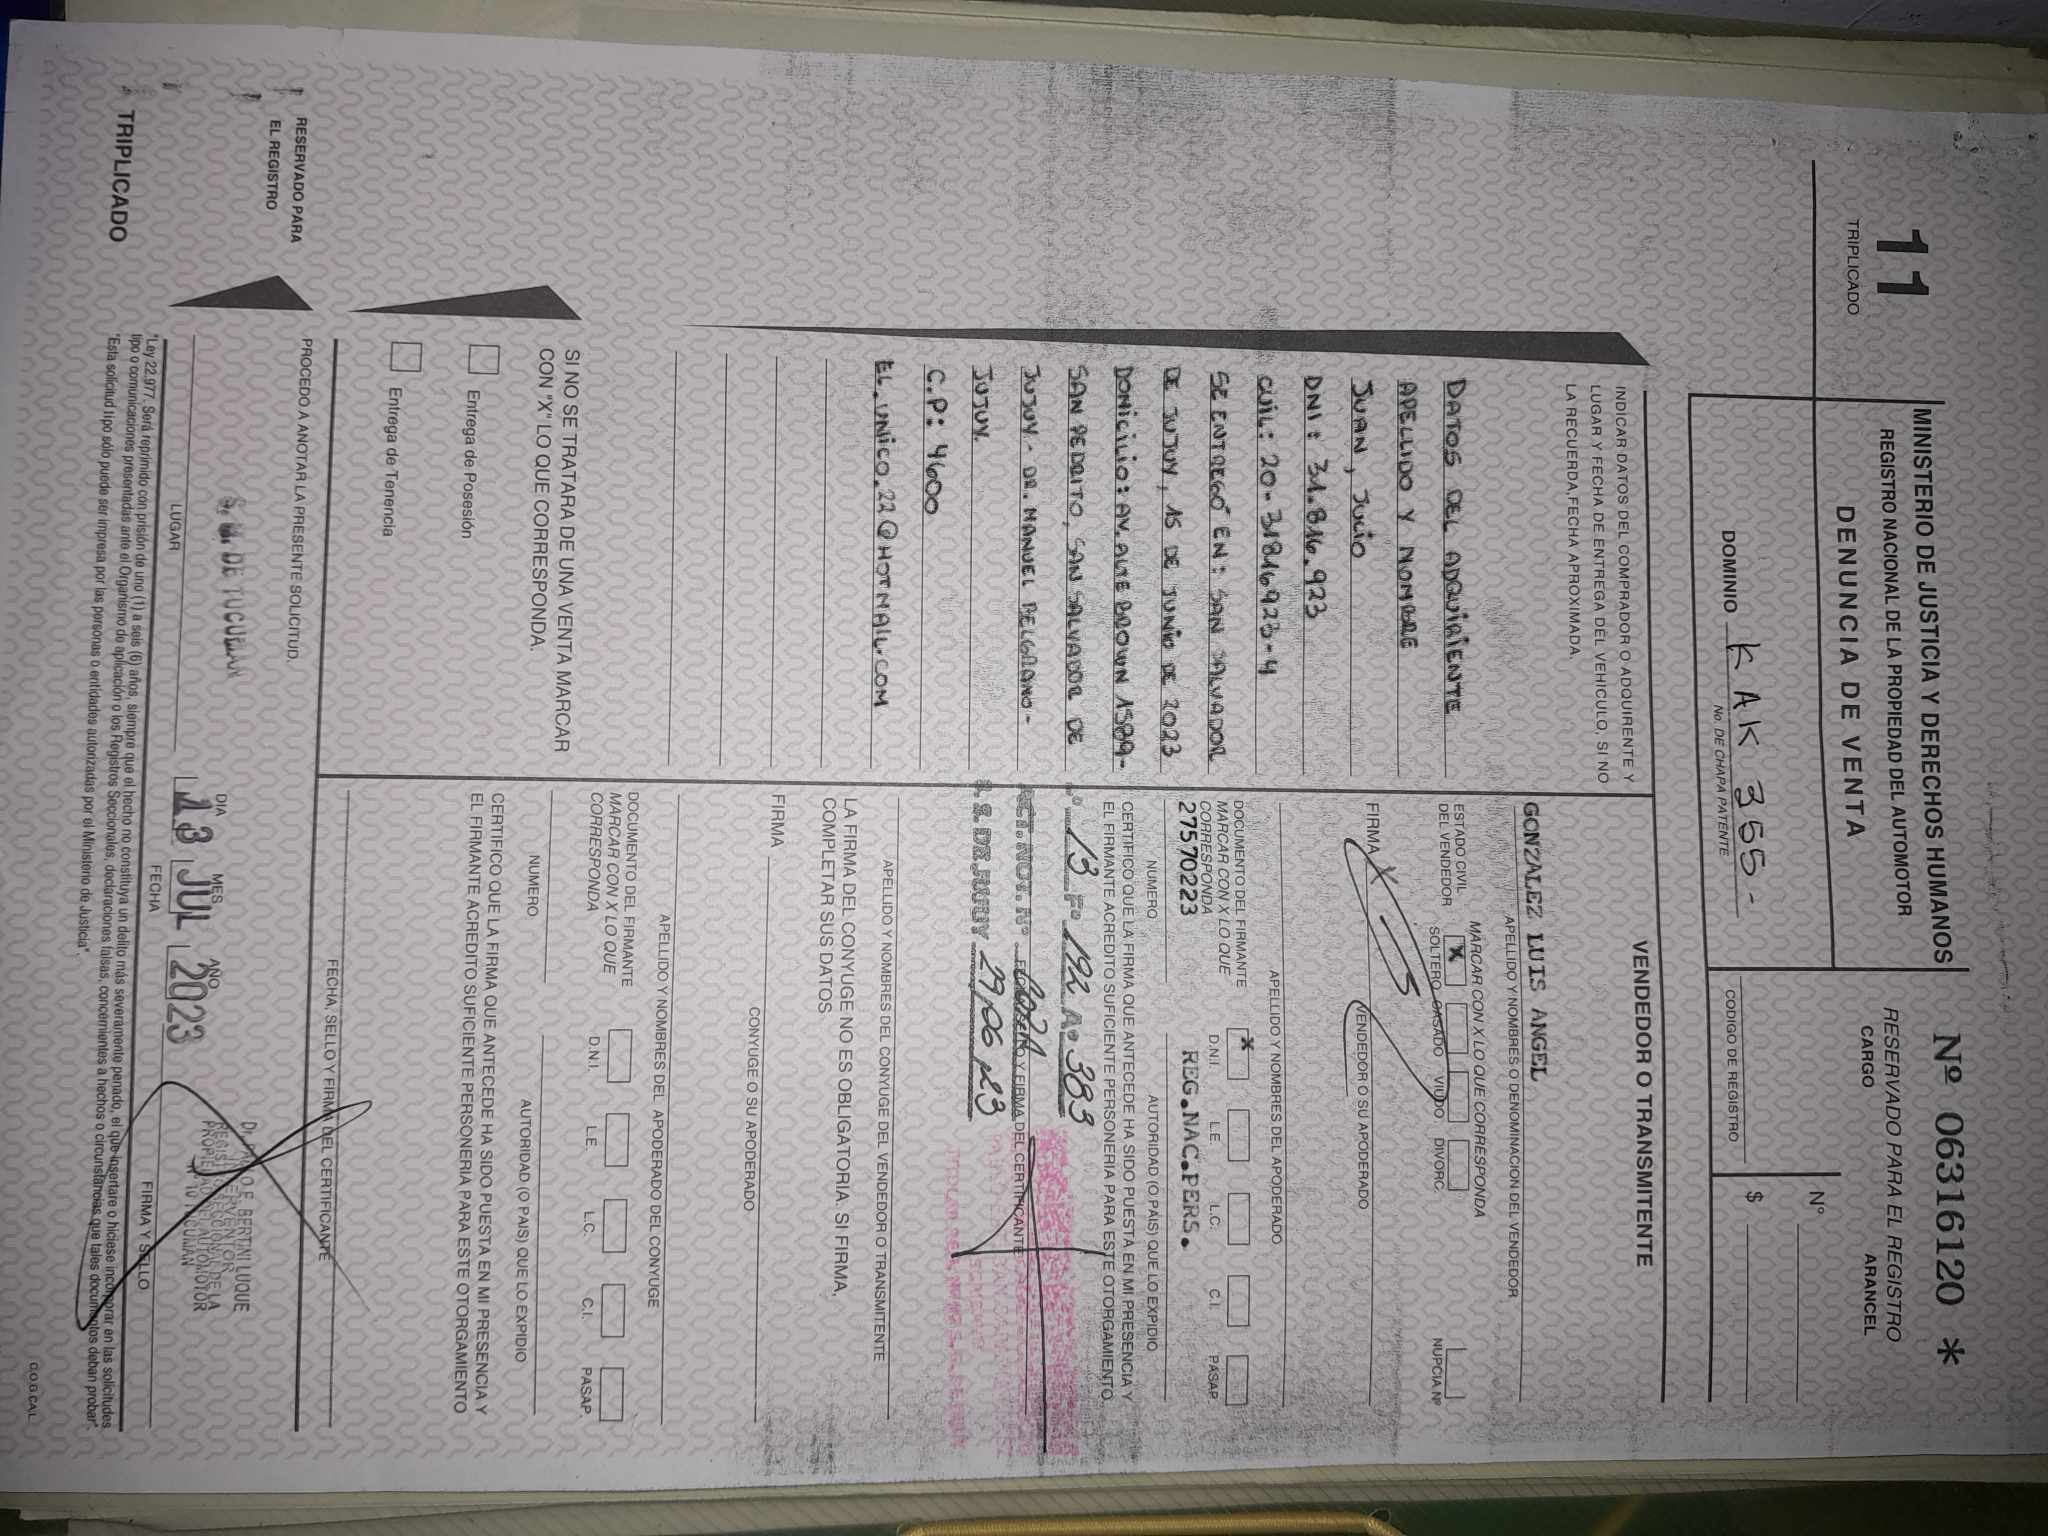 11
TRIPLICADO
MINISTERIO DE JUSTICIA Y DERECHOS HUMANOS
REGISTRO NACIONAL DE LA PROPIEDAD DEL AUTOMOTOR
DENUNCIA DE VENTA
Nº 06316120 *
RESERVADO PARA EL REGISTRO
CARGO ARANCEL
N°
$
CODIGO DE REGISTRO
DOMINIO KAK 355-
No. DE CHAPA PATENTE
INDICAR DATOS DEL COMPRADOR O ADQUIRENTE Y
LUGAR Y FECHA DE ENTREGA DEL VEHICULO, SI NO
LA RECUERDA,FECHA APROXIMADA.
DATOS DEL ADQUIRIENTE
APELLIDO Y NOMBRE
JUAN, JULIO
DNI: 31.816.923
CUIL: 20-31816923-4
SE ENTREGÓ EN: SAN SALVADOR
DE JUJUY, 15 DE JUNIO DE 2023
DOMICILIO: AV. ALTE BROWN 1589-
SAN PEDRITO, SAN SALVADOR DE
JUJUY - DR. MANUEL BELGRANO-
JUJUY.
C.P: 4600
EL.UNICO.22@HOTMAIL.COM
VENDEDOR O TRANSMITENTE
GONZALEZ LUIS ANGEL
APELLIDO Y NOMBRES O DENOMINACION DEL VENDEDOR
MARCAR CON X LO QUE CORRESPONDA
ESTADO CIVIL
DEL VENDEDOR
X
SOLTERO CASADO VIUDO DIVORC. NUPCIA Nº
FIRMA X
VENDEDOR O SU APODERADO
APELLIDO Y NOMBRES DEL APODERADO
DOCUMENTO DEL FIRMANTE
MARCAR CON X LO QUE
CORRESPONDA
X
D.N.I. L.E. L.C. C.I. PASAP.
27570223 REG.NAC.PERS.
NUMERO AUTORIDAD (O PAIS) QUE LO EXPIDIO
CERTIFICO QUE LA FIRMA QUE ANTECEDE HA SIDO PUESTA EN MI PRESENCIA Y
EL FIRMANTE ACREDITO SUFICIENTE PERSONERIA PARA ESTE OTORGAMIENTO
13 Fº 192 Aº 383
ACT. NOT. Nº
FECHA, SELLO Y FIRMA DEL CERTIFICANTE
S. S. DE JUJUY 29,06,23
APELLIDO Y NOMBRES DEL CONYUGE DEL VENDEDOR O TRANSMITENTE
LA FIRMA DEL CONYUGE NO ES OBLIGATORIA. SI FIRMA,
COMPLETAR SUS DATOS
FIRMA
CONYUGE O SU APODERADO
APELLIDO Y NOMBRES DEL APODERADO DEL CONYUGE
DOCUMENTO DEL FIRMANTE
MARCAR CON X LO QUE
CORRESPONDA
D.N.I. L.E. L.C. C.I. PASAP.
NUMERO AUTORIDAD (O PAIS) QUE LO EXPIDIO
CERTIFICO QUE LA FIRMA QUE ANTECEDE HA SIDO PUESTA EN MI PRESENCIA Y
EL FIRMANTE ACREDITO SUFICIENTE PERSONERIA PARA ESTE OTORGAMIENTO
FECHA, SELLO Y FIRMA DEL CERTIFICANTE
SI NO SE TRATARA DE UNA VENTA MARCAR
CON "X" LO QUE CORRESPONDA.
Entrega de Posesión
Entrega de Tenencia
RESERVADO PARA
EL REGISTRO
PROCEDO A ANOTAR LA PRESENTE SOLICITUD.
S. M. DE TUCUMAN
LUGAR
DIA MES AÑO
13 JUL 2023
FECHA
Dr. PABLO E. BERTINI LUQUE
INTERVENTOR
REGISTRO SECCIONAL DE LA
PROPIEDAD DEL AUTOMOTOR
Nº 10 TUCUMAN
FIRMA Y SELLO
TRIPLICADO
"Ley 22.977. Será reprimido con prisión de uno (1) a seis (6) años, siempre que el hecho no constituya un delito más severamente penado, el que insertare o hiciese incorporar en las solicitudes
tipo o comunicaciones presentadas ante el Organismo de aplicación o los Registros Seccionales, declaraciones falsas, concernientes a hechos o circunstancias que tales documentos deban probar".
"Esta solicitud tipo sólo puede ser impresa por las personas o entidades autorizadas por el Ministerio de Justicia".
C.O.G.CA.L.